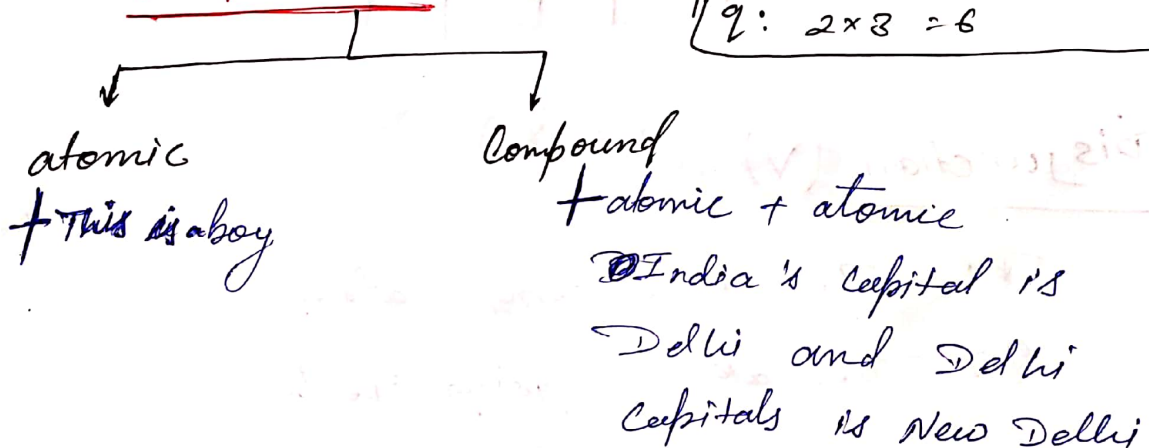 q: 2 × 3 = 6
atomic
Compound
+ This is a boy
+ atomic + atomic
India's Capital is
Delhi and Delhi
Capitals is New Delhi